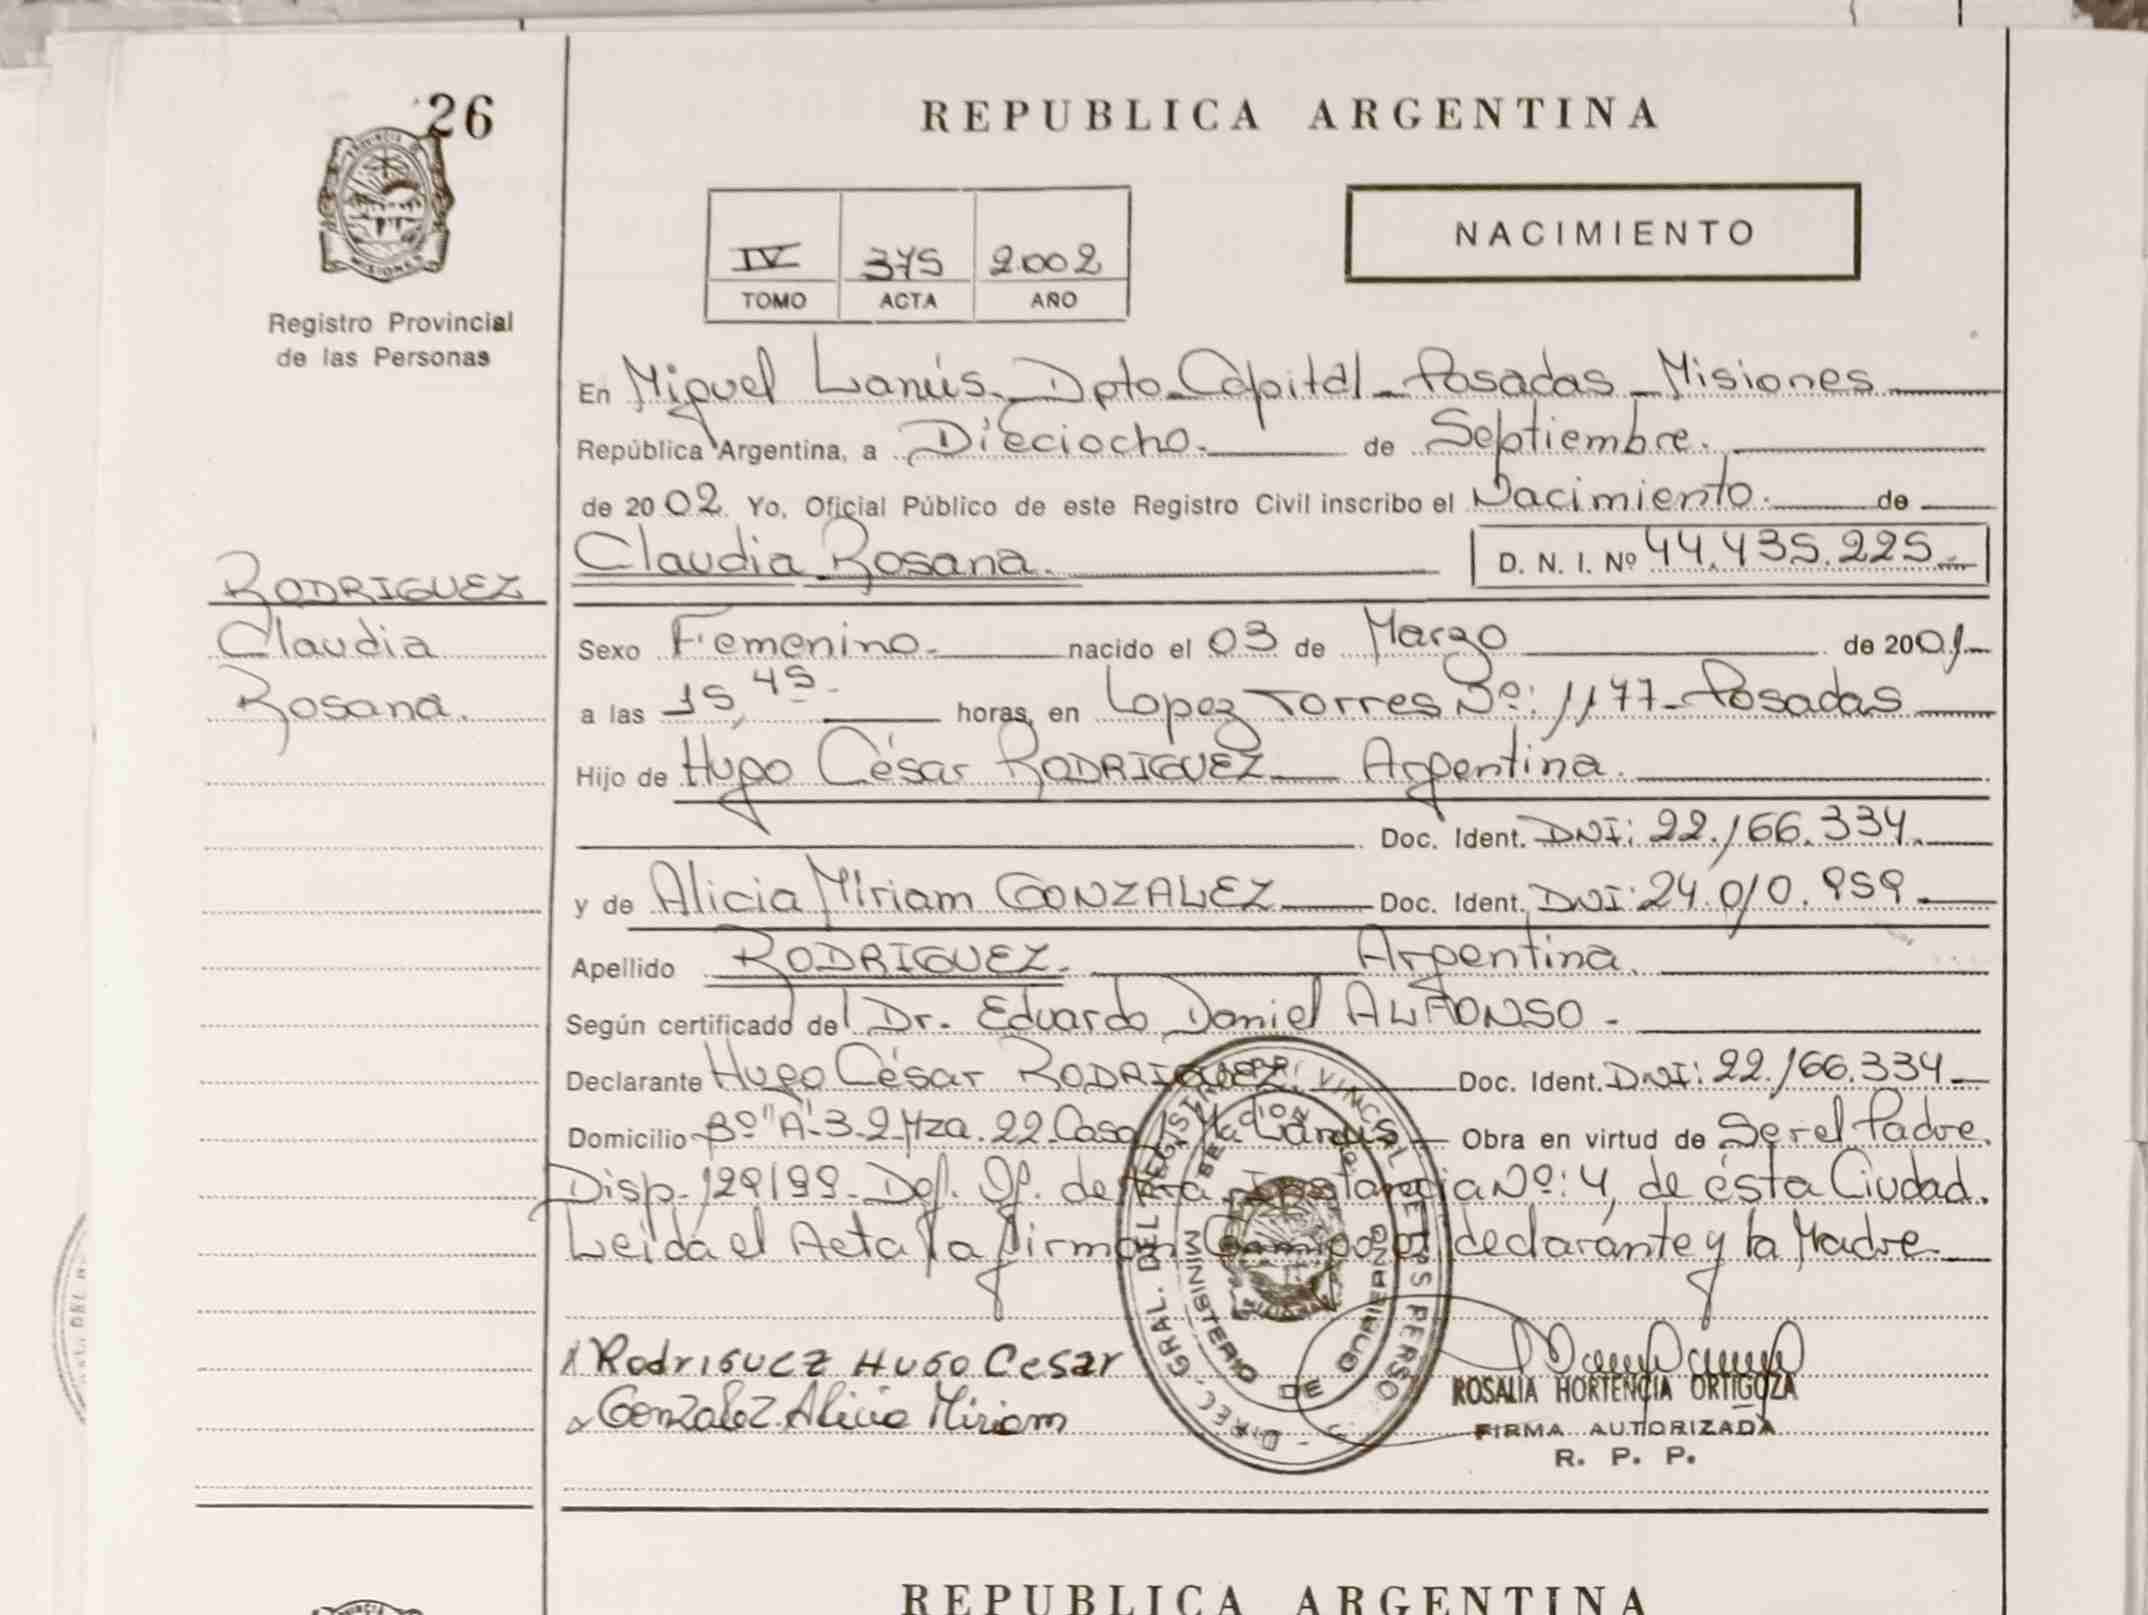 26
PROVINCIA DE
MISIONES
Registro Provincial
de las Personas
REPUBLICA ARGENTINA
IV 375 2.002
TOMO ACTA AÑO
NACIMIENTO
En Miguel Lanús - Dpto. Capital - Posadas - Misiones
República Argentina, a Dieciocho. de Septiembre.
de 2002 Yo, Oficial Público de este Registro Civil inscribo el Nacimiento. de
Claudia Rosana. D. N. I. Nº 44.435.225
RODRIGUEZ
Claudia
Rosana.
Sexo Femenino. nacido el 03 de Marzo de 2001
a las 15,45. horas, en Lopez Torres Nº: 1177 - Posadas
Hijo de Hugo César RODRIGUEZ Argentina.
Doc. Ident. DNI: 22.166.334.
y de Alicia Miriam GONZALEZ Doc. Ident. DNI: 24.010.959
Apellido RODRIGUEZ. Argentina.
Según certificado del Dr. Eduardo Daniel ALFONSO.
Declarante Hugo César RODRIGUEZ. Doc. Ident. DNI: 22.166.334
Domicilio Bº "A"-3-2 Mza. 22 Casa Lanús Obra en virtud de Ser el Padre.
Disp. 129/99 - Def. Of. de Instancia Nº: 4, de ésta Ciudad.
Leida el Acta la firman Conmigo el declarante y la Madre
DIREC. GRAL. DEL REGISTRO PROVINCIAL DE LAS PERSONAS
MINISTERIO DE GOBIERNO
Rodriguez Hugo Cesar
Gonzalez Alicia Miriam
ROSALIA HORTENCIA ORTIGOZA
FIRMA AUTORIZADA
R. P. P.
REPUBLICA ARGENTINA